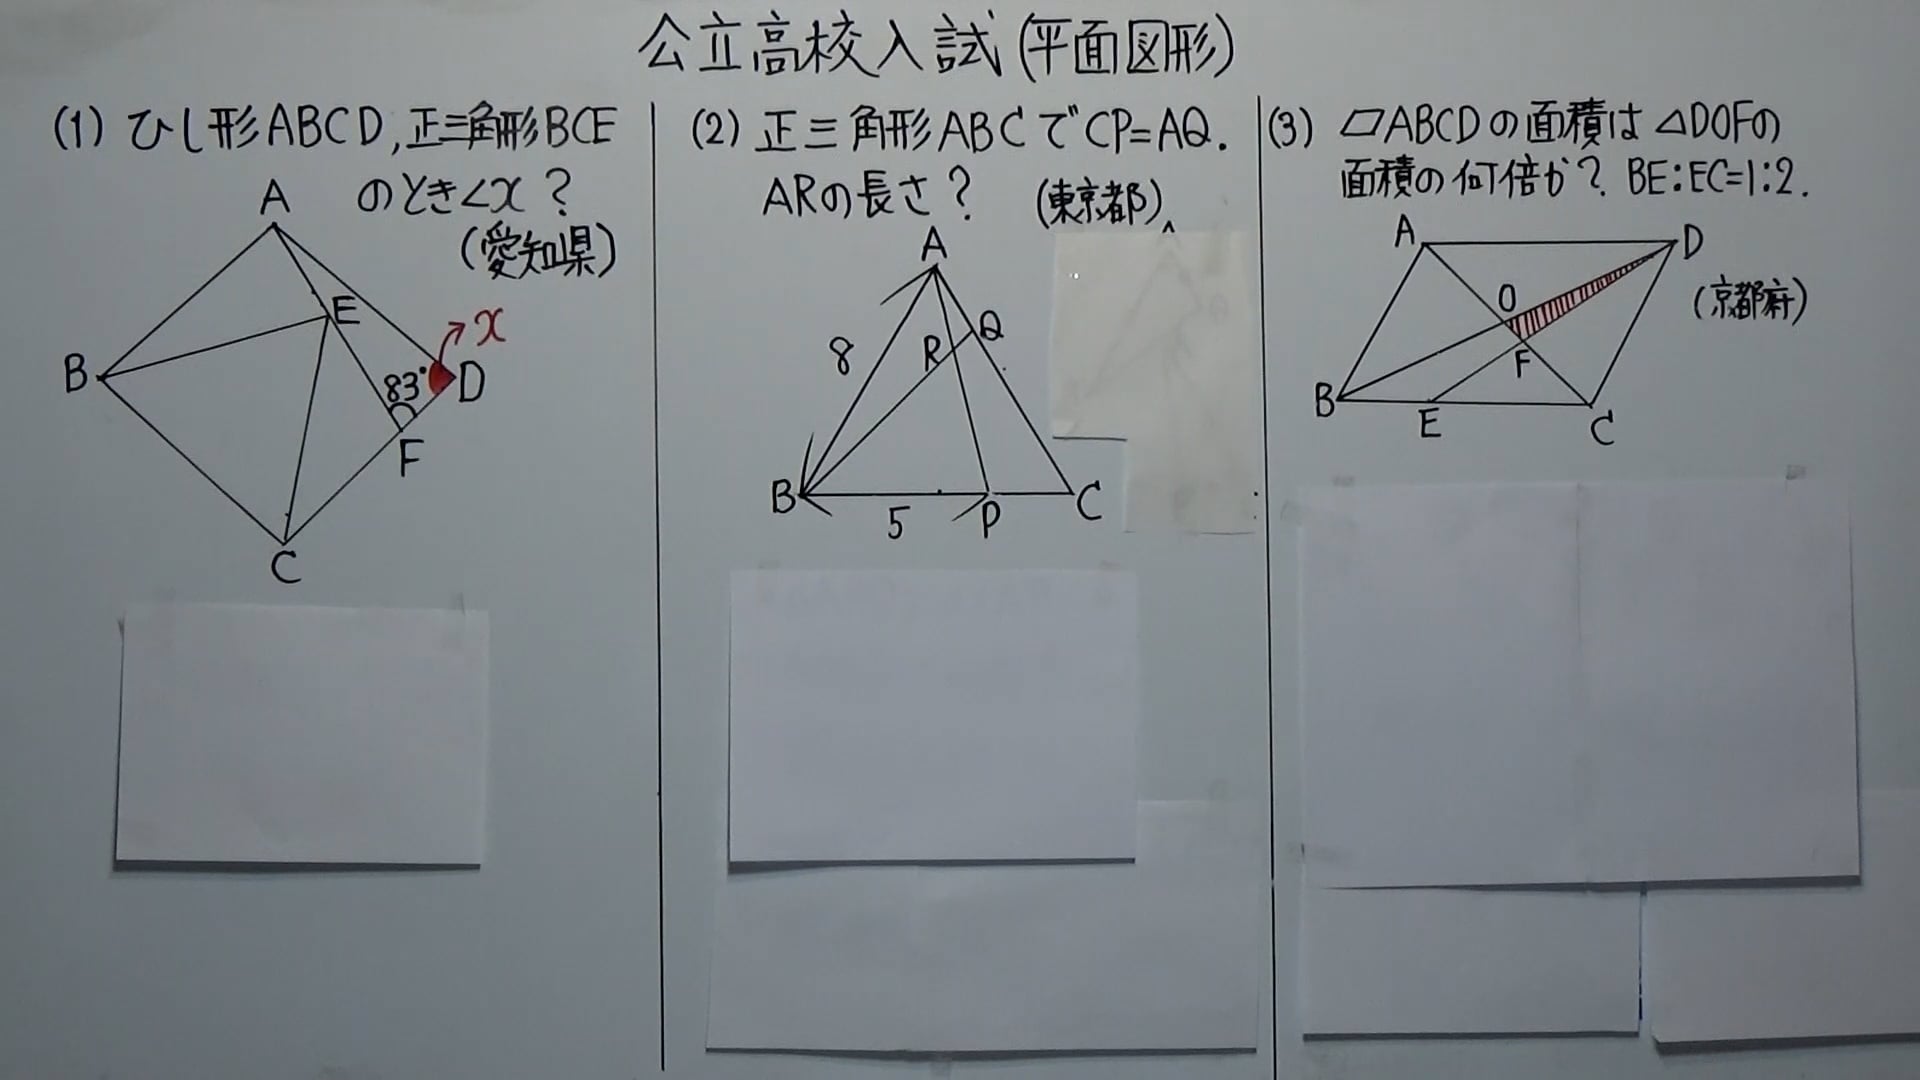 公立高校入試(平面図形)
(1) ひし形ABCD,正三角形BCE
のとき∠x?
(愛知県)
A
E
x
B
83°
D
F
C
(2) 正三角形ABCでCP=AQ.
ARの長さ?
(東京都)
A
Q
8
R
B
5
P
C
(3) ▱ABCDの面積は△DOFの
面積の何倍か? BE:EC=1:2.
A
D
(京都府)
O
F
B
E
C